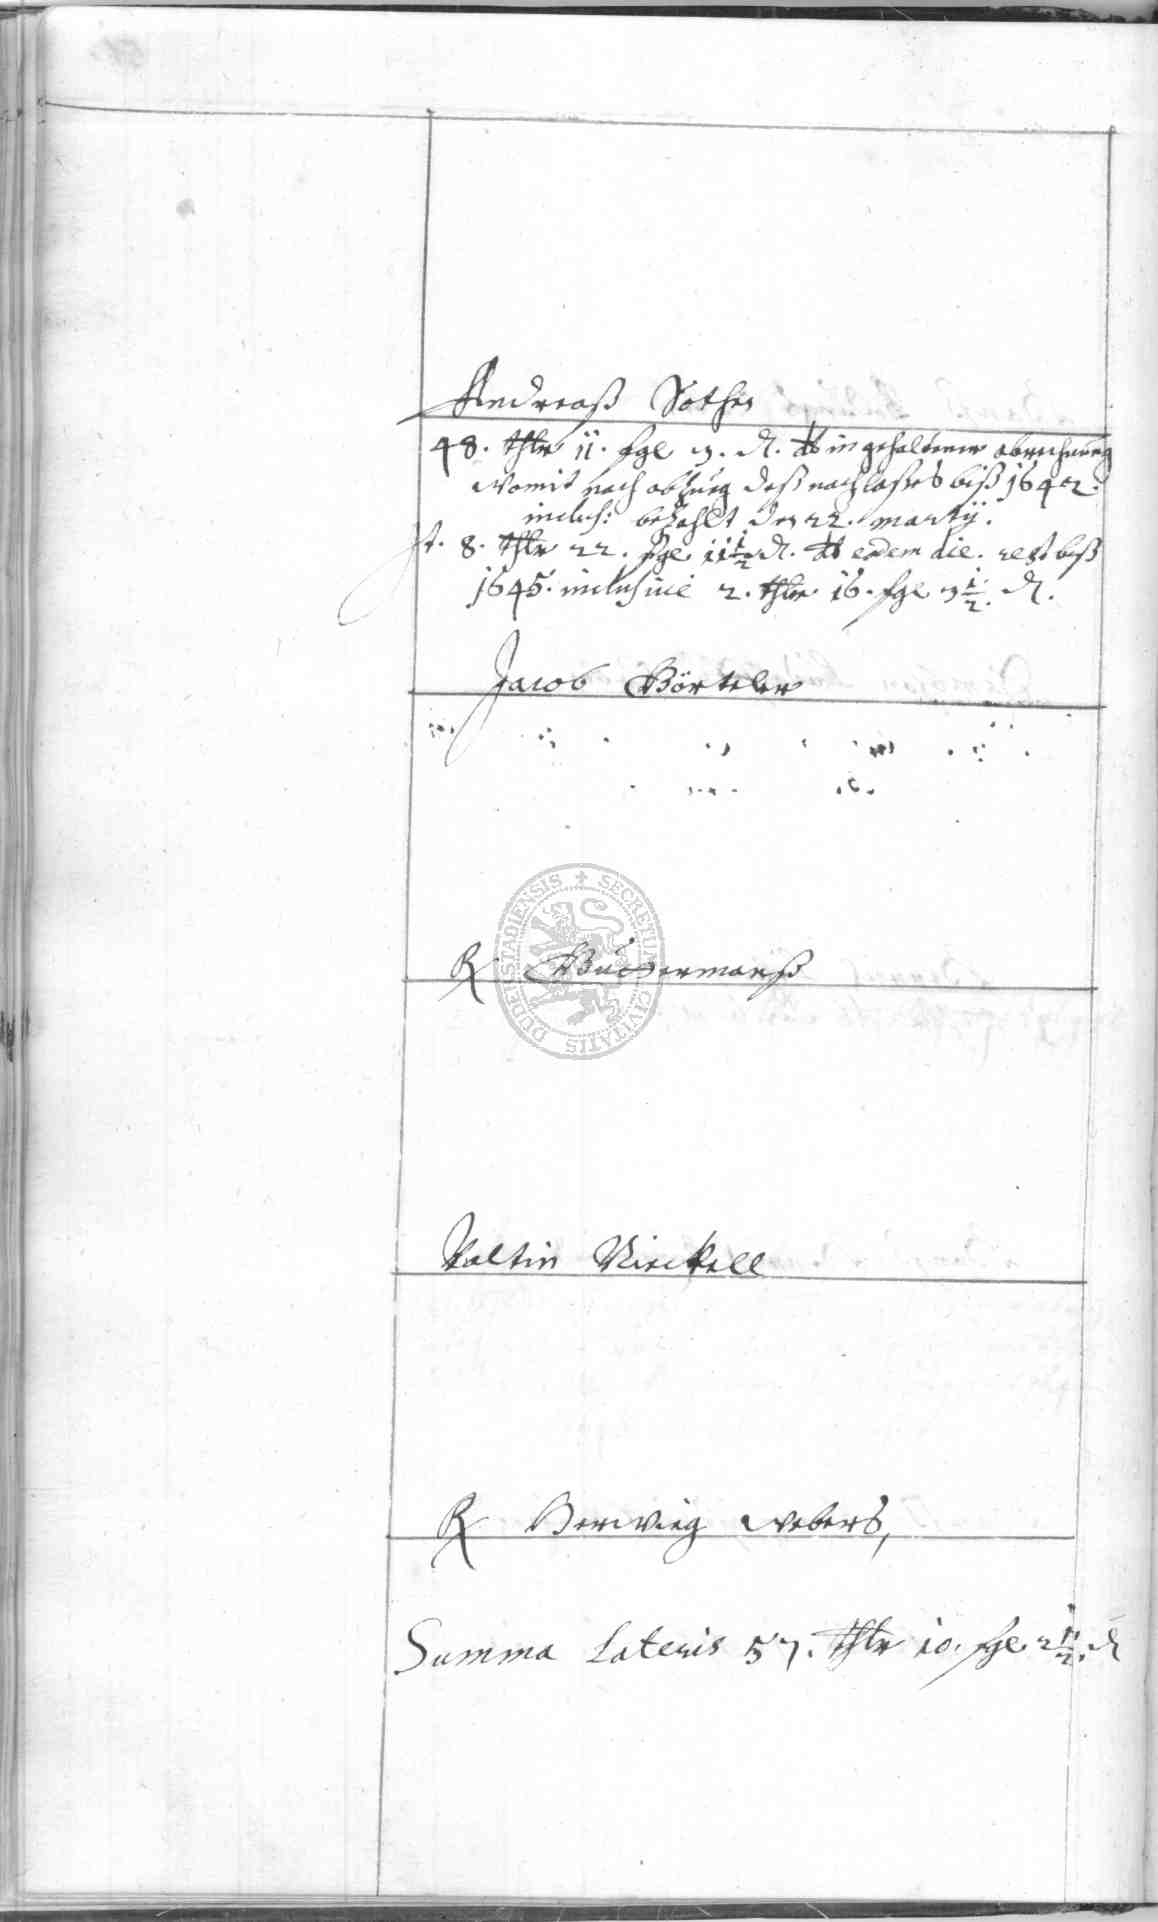 Andreaß Sothen
48. thlr 11. sgl 3. d. dt in gehaltener abrechnung
womit nach abzueg deß nachlaßes biß 1642.
inclus: bezahlt den 22. martij.
It. 8. thlr 22. sgl 11 1/2 d. dt eodem die. rest biß
1645. inclusive 2. thlr 16. sgl 3 1/2 d.
Jacob Börteler
R
Valtin Nirckell
R Herwieg Webers,
Summa Lateris 57. thlr 10. sgl 2 1/2. d
SECRETUM CIVITATIS DUDERSTADIENSIS